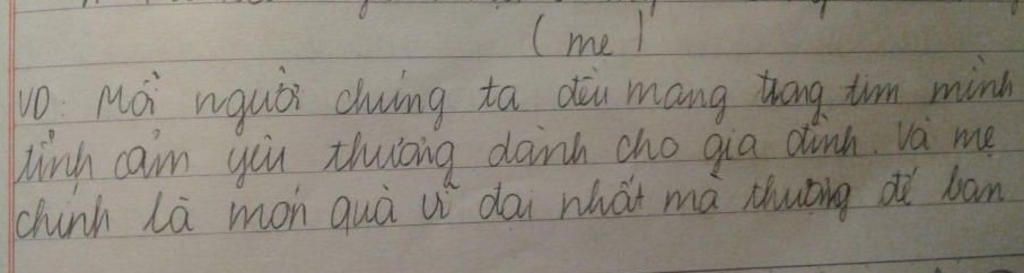 ( mẹ )
VD: Mỗi người chúng ta đều mang trong tim mình
tình cảm yêu thương dành cho gia đình. Và mẹ
chính là món quà vĩ đại nhất mà thượng đế ban